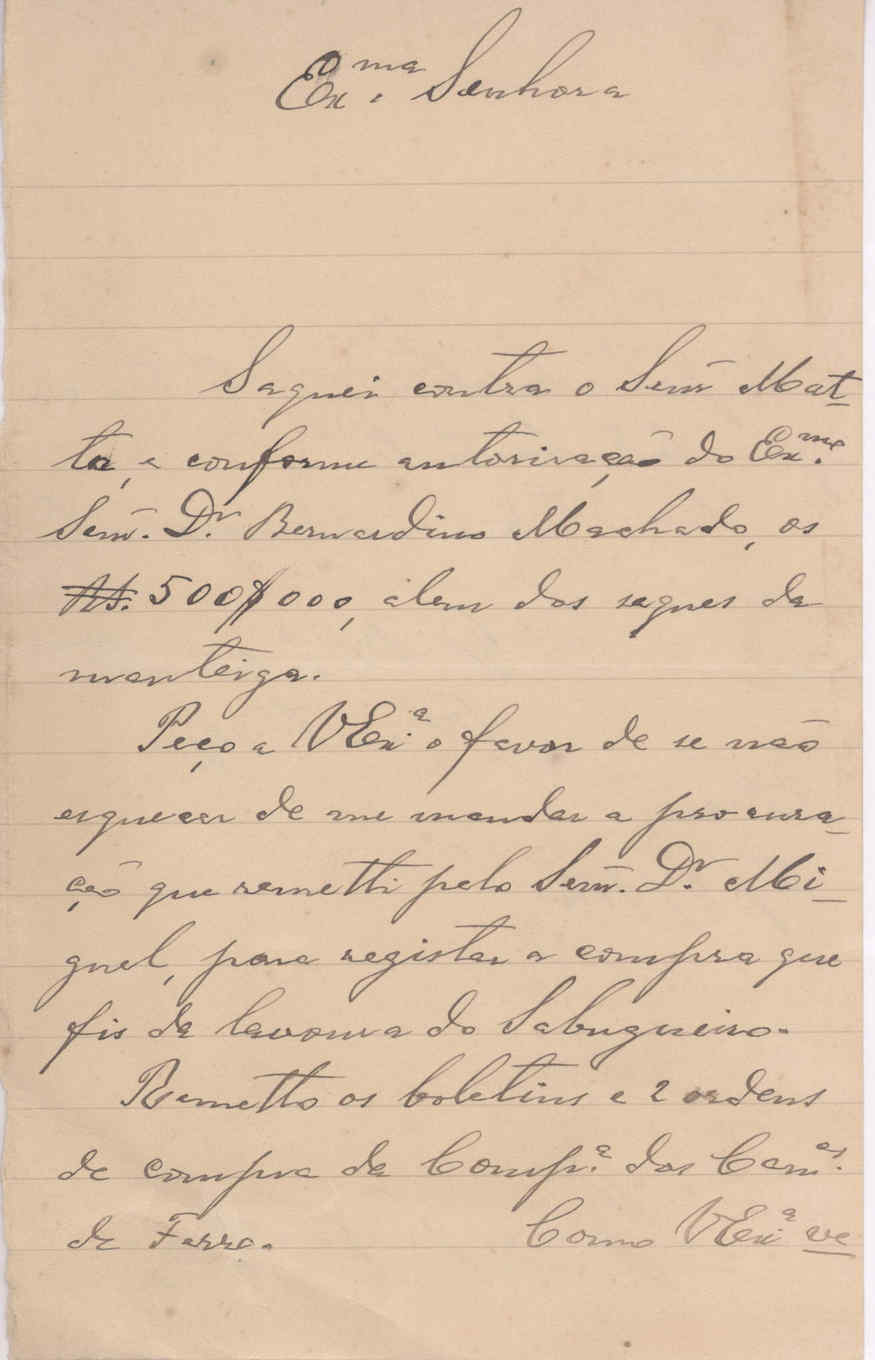 Ex.ma Senhora
Saquei contra o Senr Mat-
ta, e conforme autorisação do Ex.mo
Senr. Dr. Bernardino Machado, os
Rs. 500$000, alem dos saques da
manteiga.
Peço a VExa o favor de se não
esquecer de me mandar a procura-
ção que remetti pelo Senr. Dr. Mi-
guel, para registar a compra que
fis da lavoura do Sabugueiro.
Remetto os boletins e 2 ordens
de compra da Comp.a dos Cam.os
de Ferro. Como VExa ve